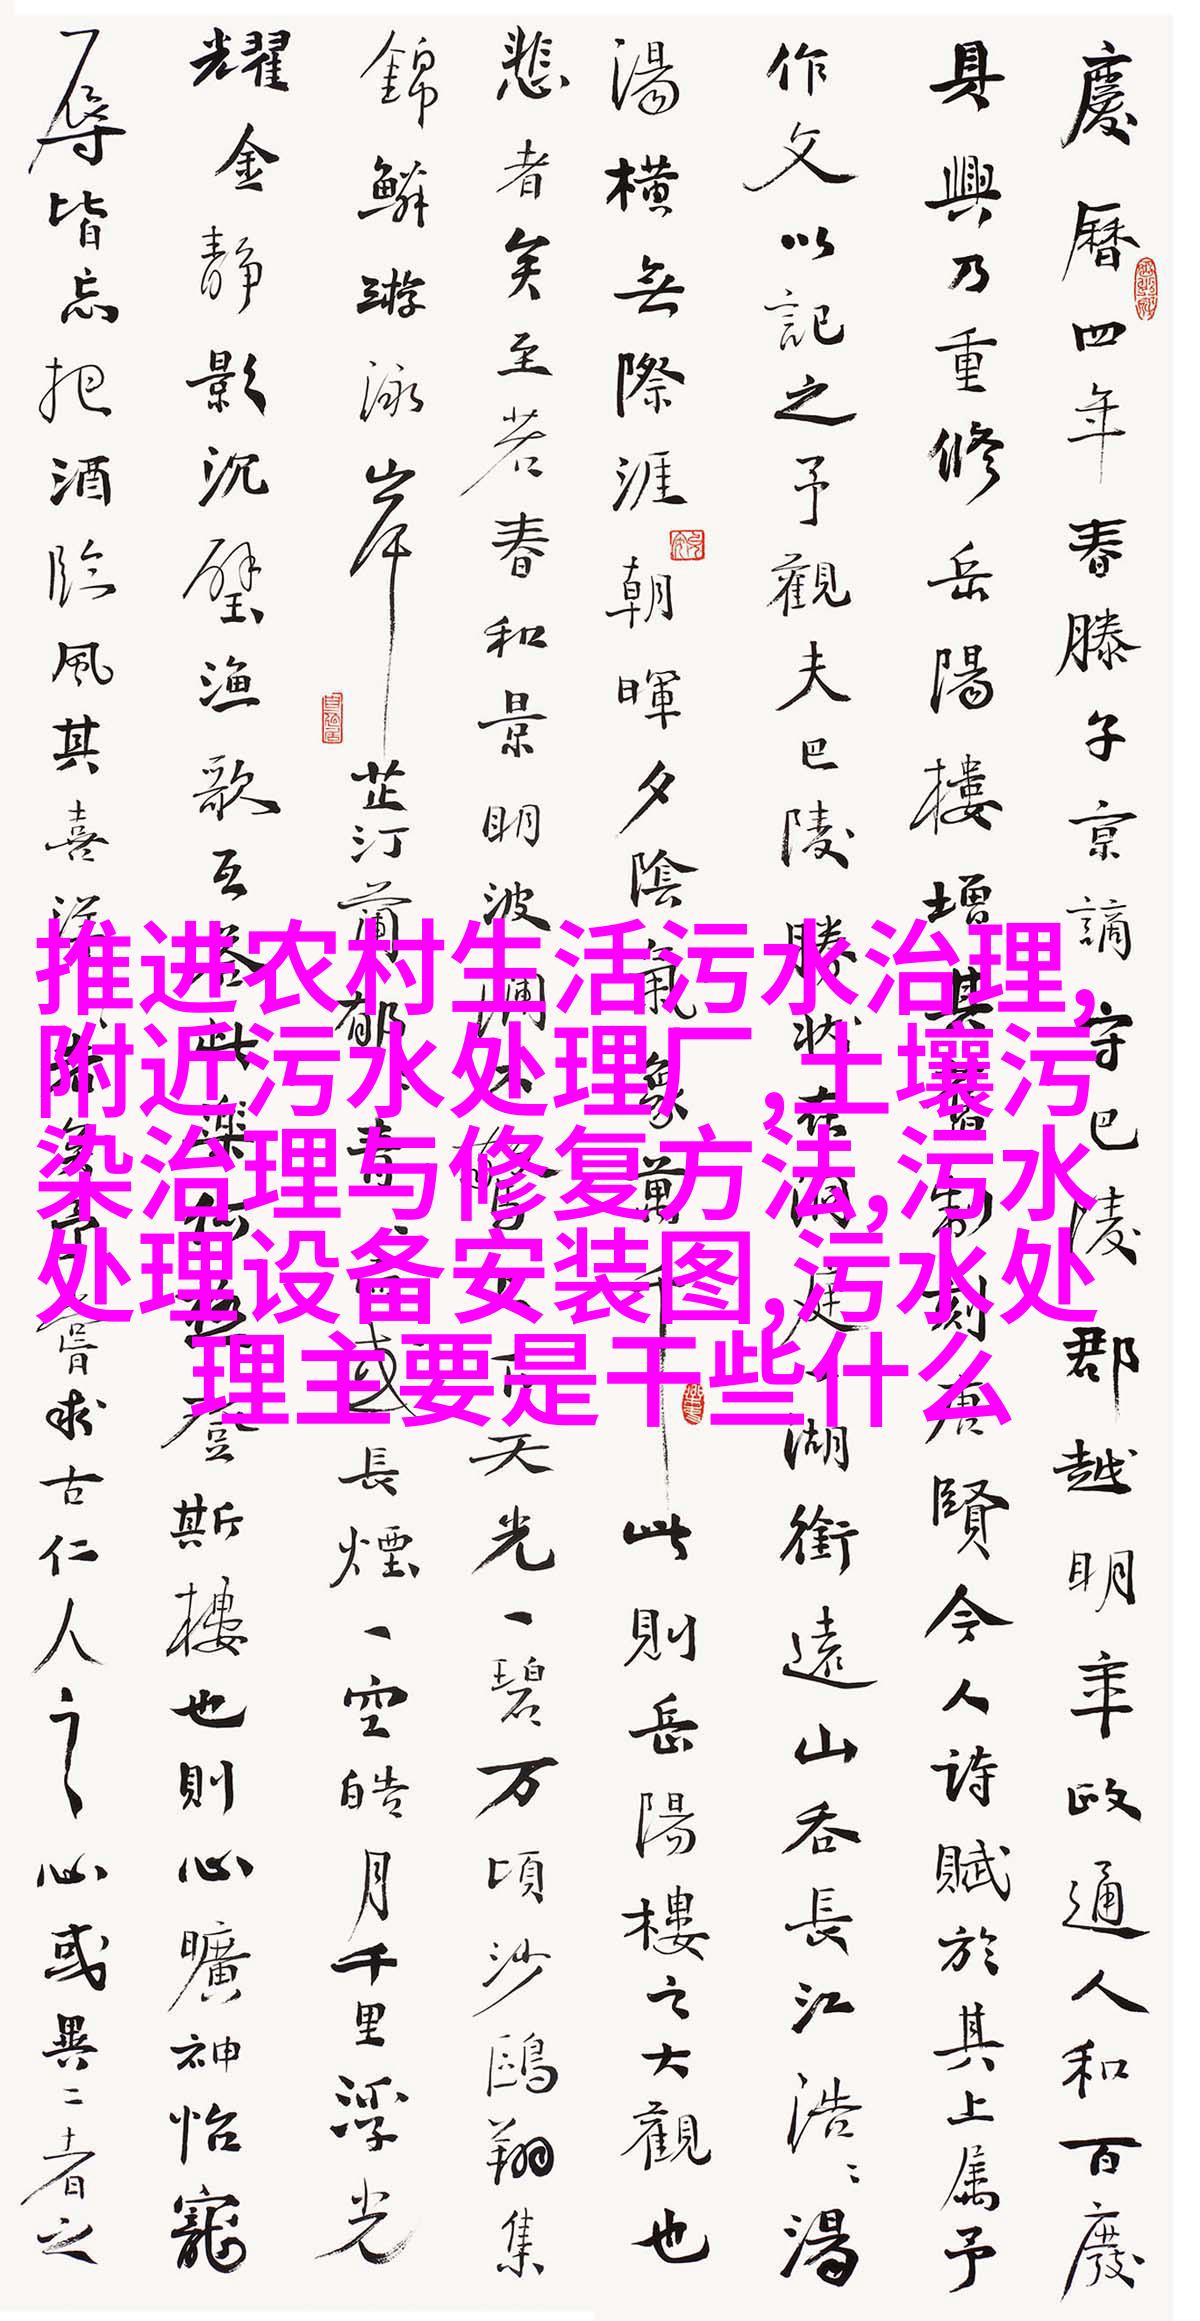 慶曆四年春滕子京謫守巴陵郡越明年政通人和百廢
具興乃重修岳陽樓增其舊制刻唐賢今人詩賦於其上属予
作文以記之予觀夫巴陵勝狀在洞庭一湖銜遠山吞長江浩〻湯
湯橫無際涯朝暉夕陰氣象萬千此則岳陽樓之大觀也
悲者矣至若春和景明波瀾不驚上下天光一碧万頃沙鷗翔集
錦鱗游泳岸芷汀蘭郁〻青〻而或長煙一空皓月千里浮光
耀金静影沉璧漁歌互答此樂何極登斯樓也則心曠神怡寵
辱皆忘把酒臨風其喜洋〻者矣予嘗求古仁人之心或異二者之
推进农村生活污水治理,
附近污水处理厂,土壤污
染治理与修复方法,污水
处理设备安装图,污水处
理主要是干些什么